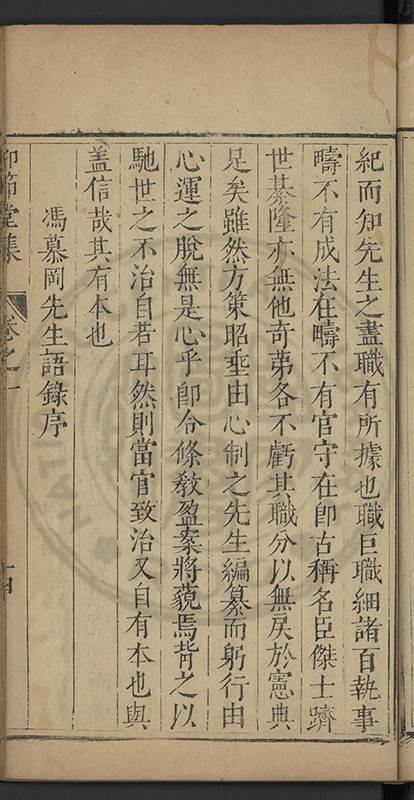 紀而知先生之盡職有所據也職巨職細諸百執事
疇不有成法在疇不有官守在卽古稱名臣傑士躋
世綦隆亦無他奇苐各不虧其職分以無戾於憲典
足矣雖然方策昭垂由心制之先生編纂而躬行由
心運之脫無是心乎卽令條敎盈案將藐焉背之以
馳世之不治自若耳然則當官致治又自有本也與
蓋信哉其有本也
馮慕岡先生語錄序
仰節堂集
卷之一
十四